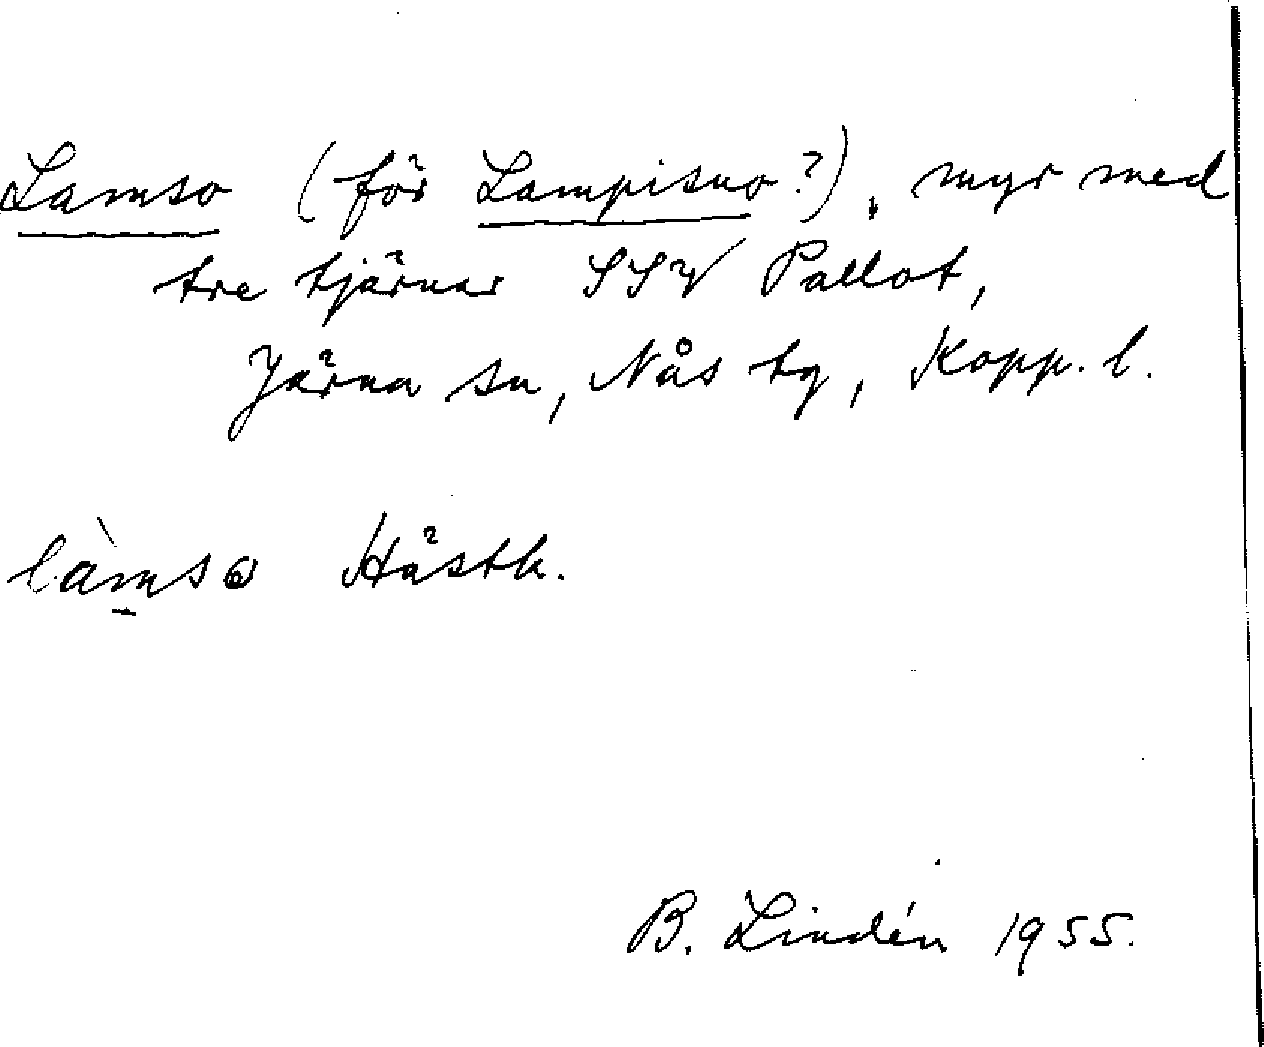 Lamso (för Lampisuo?), myr med
tre tjärnar SSV Pallot,
Järna sn, Nås tg, Kopp. l.
làmso Håstk.
B. Lindén 1955.